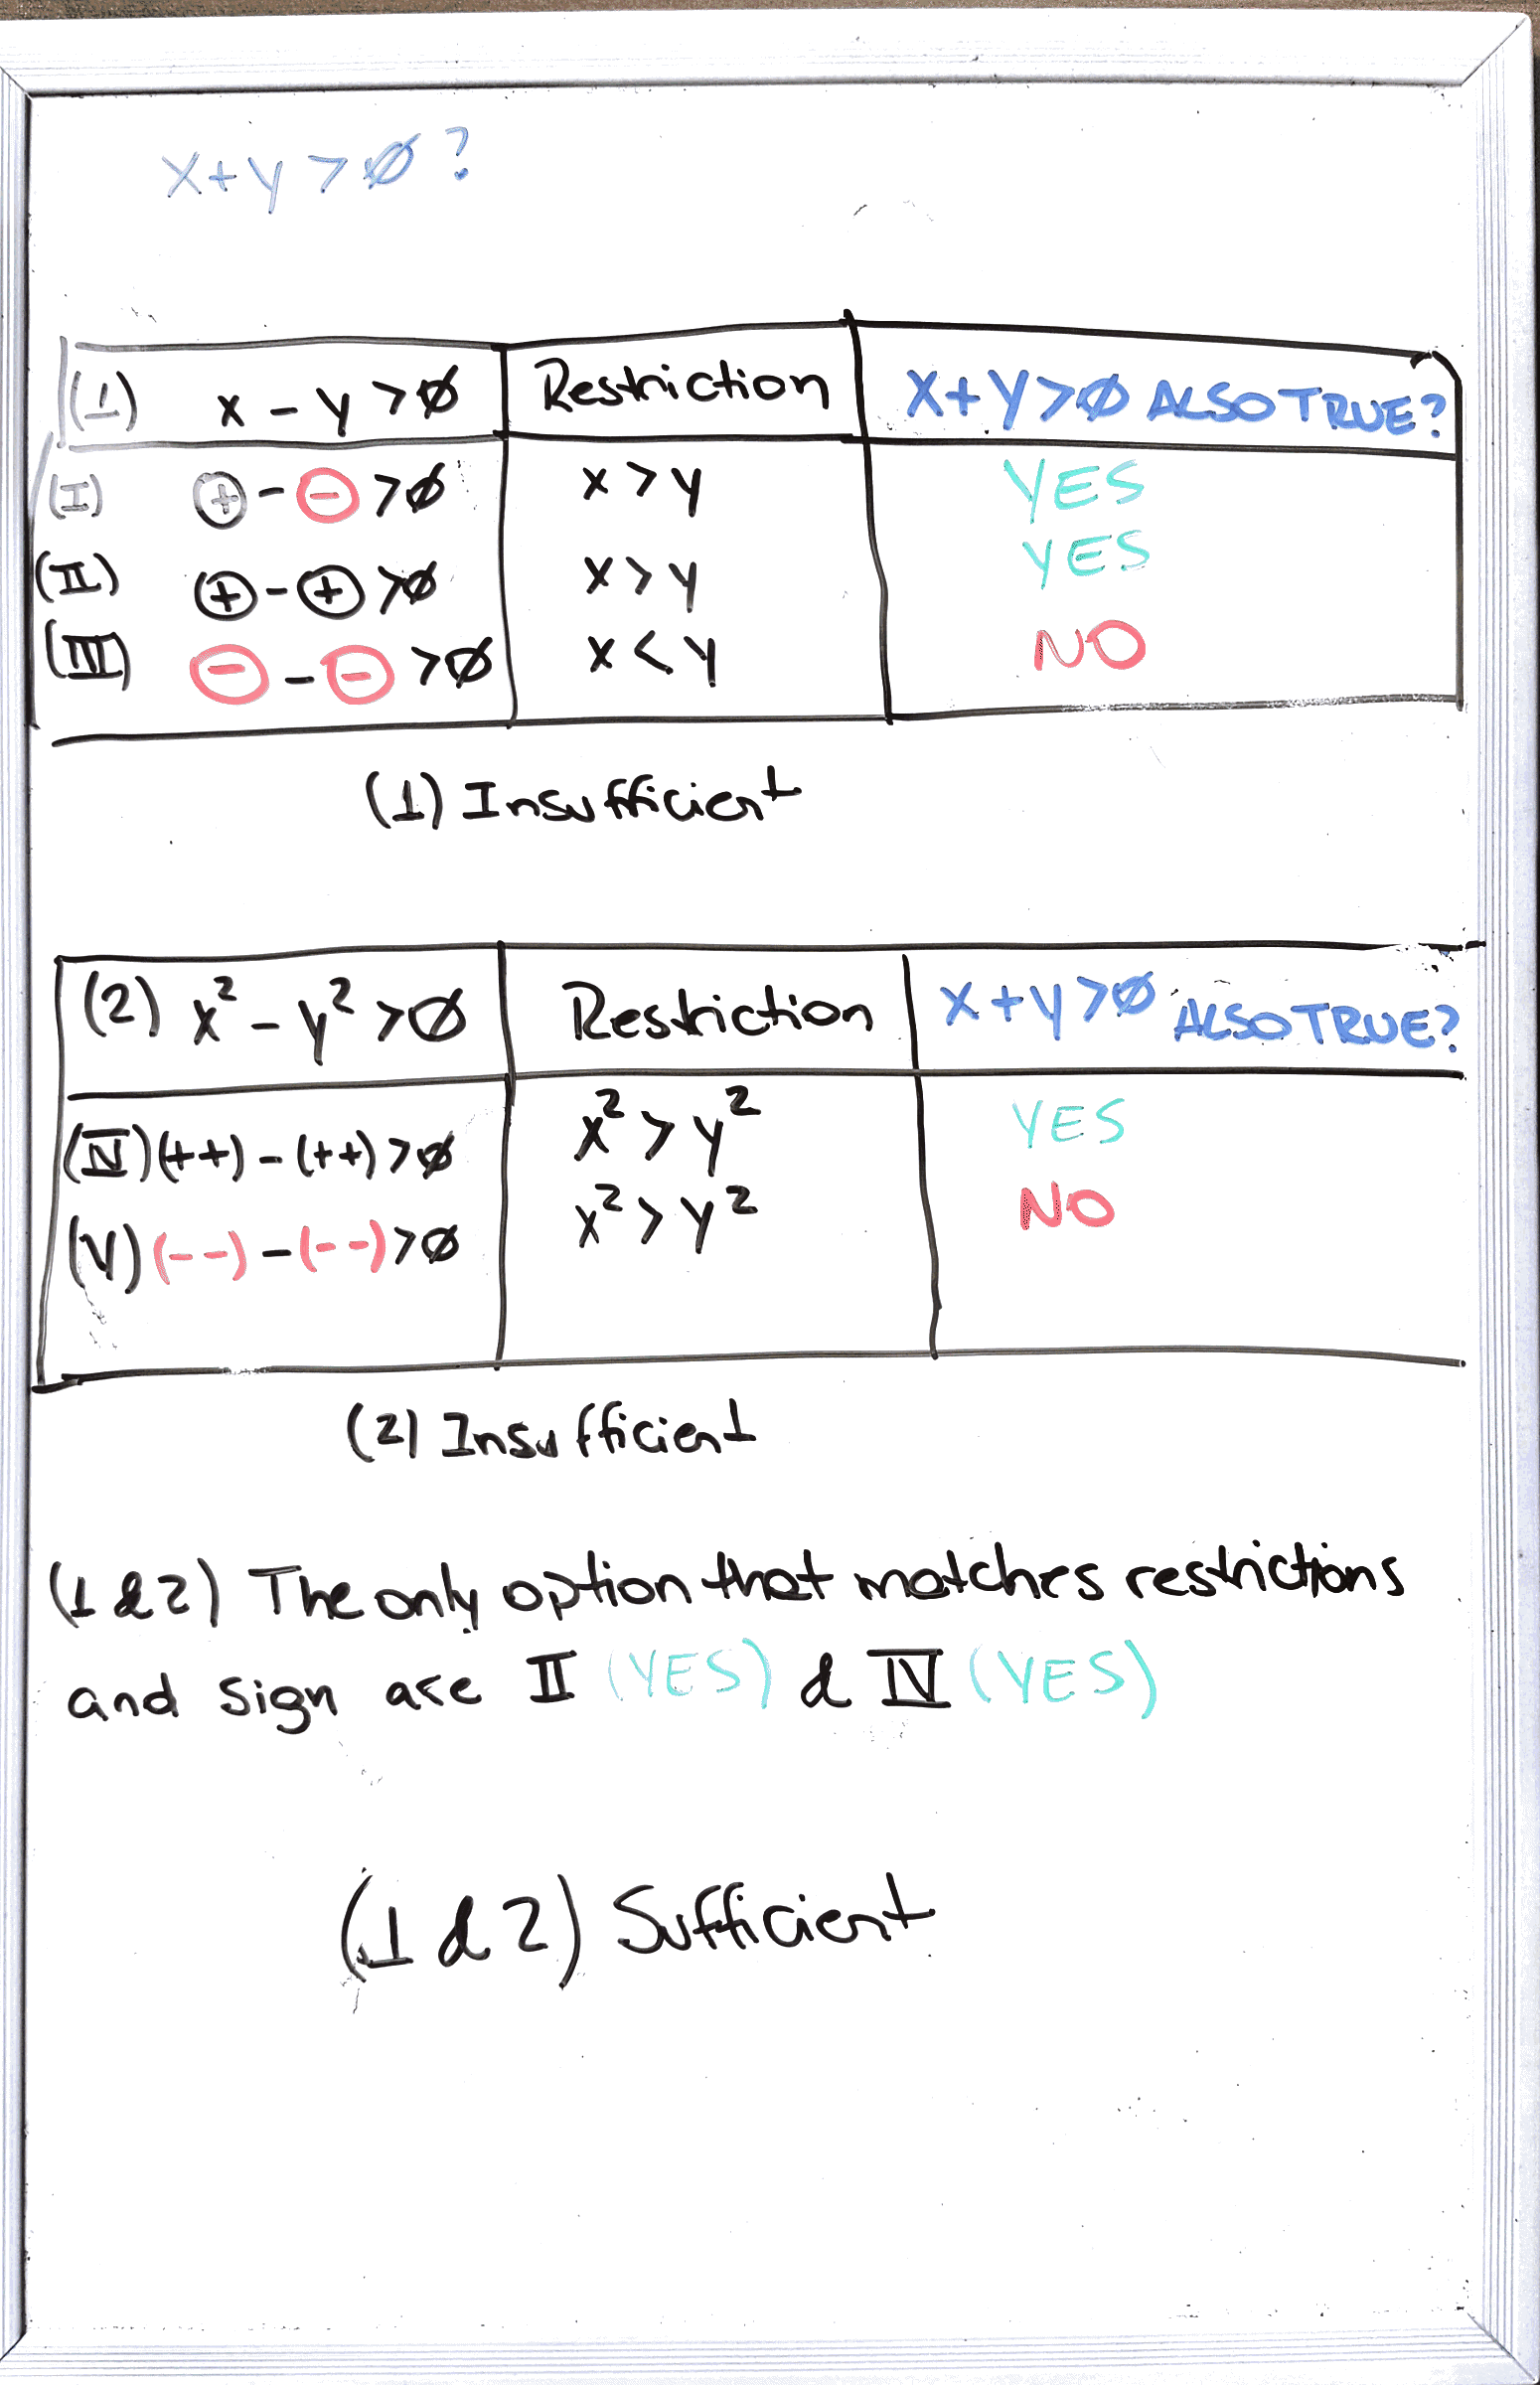 x+y>∅?
(1) x-y>∅ Restriction x+y>∅ ALSO TRUE?
(I) ⊕-⊖>∅ x>y YES
(II) ⊕-⊕>∅ x>y YES
(III) ⊖-⊖>∅ x<y NO
(1) Insufficient
(2) x²-y²>∅ Restriction x+y>∅ ALSO TRUE?
(IV) (++)-(++)>∅ x²>y² YES
(V) (--)-(--)>∅ x²>y² NO
(2) Insufficient
(1&2) The only option that matches restrictions
and sign are II (YES) & IV (YES)
(1&2) Sufficient